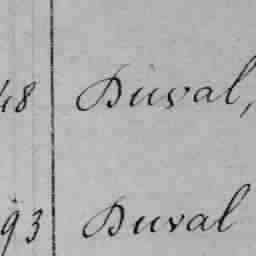 48 Duval,
93 Duval